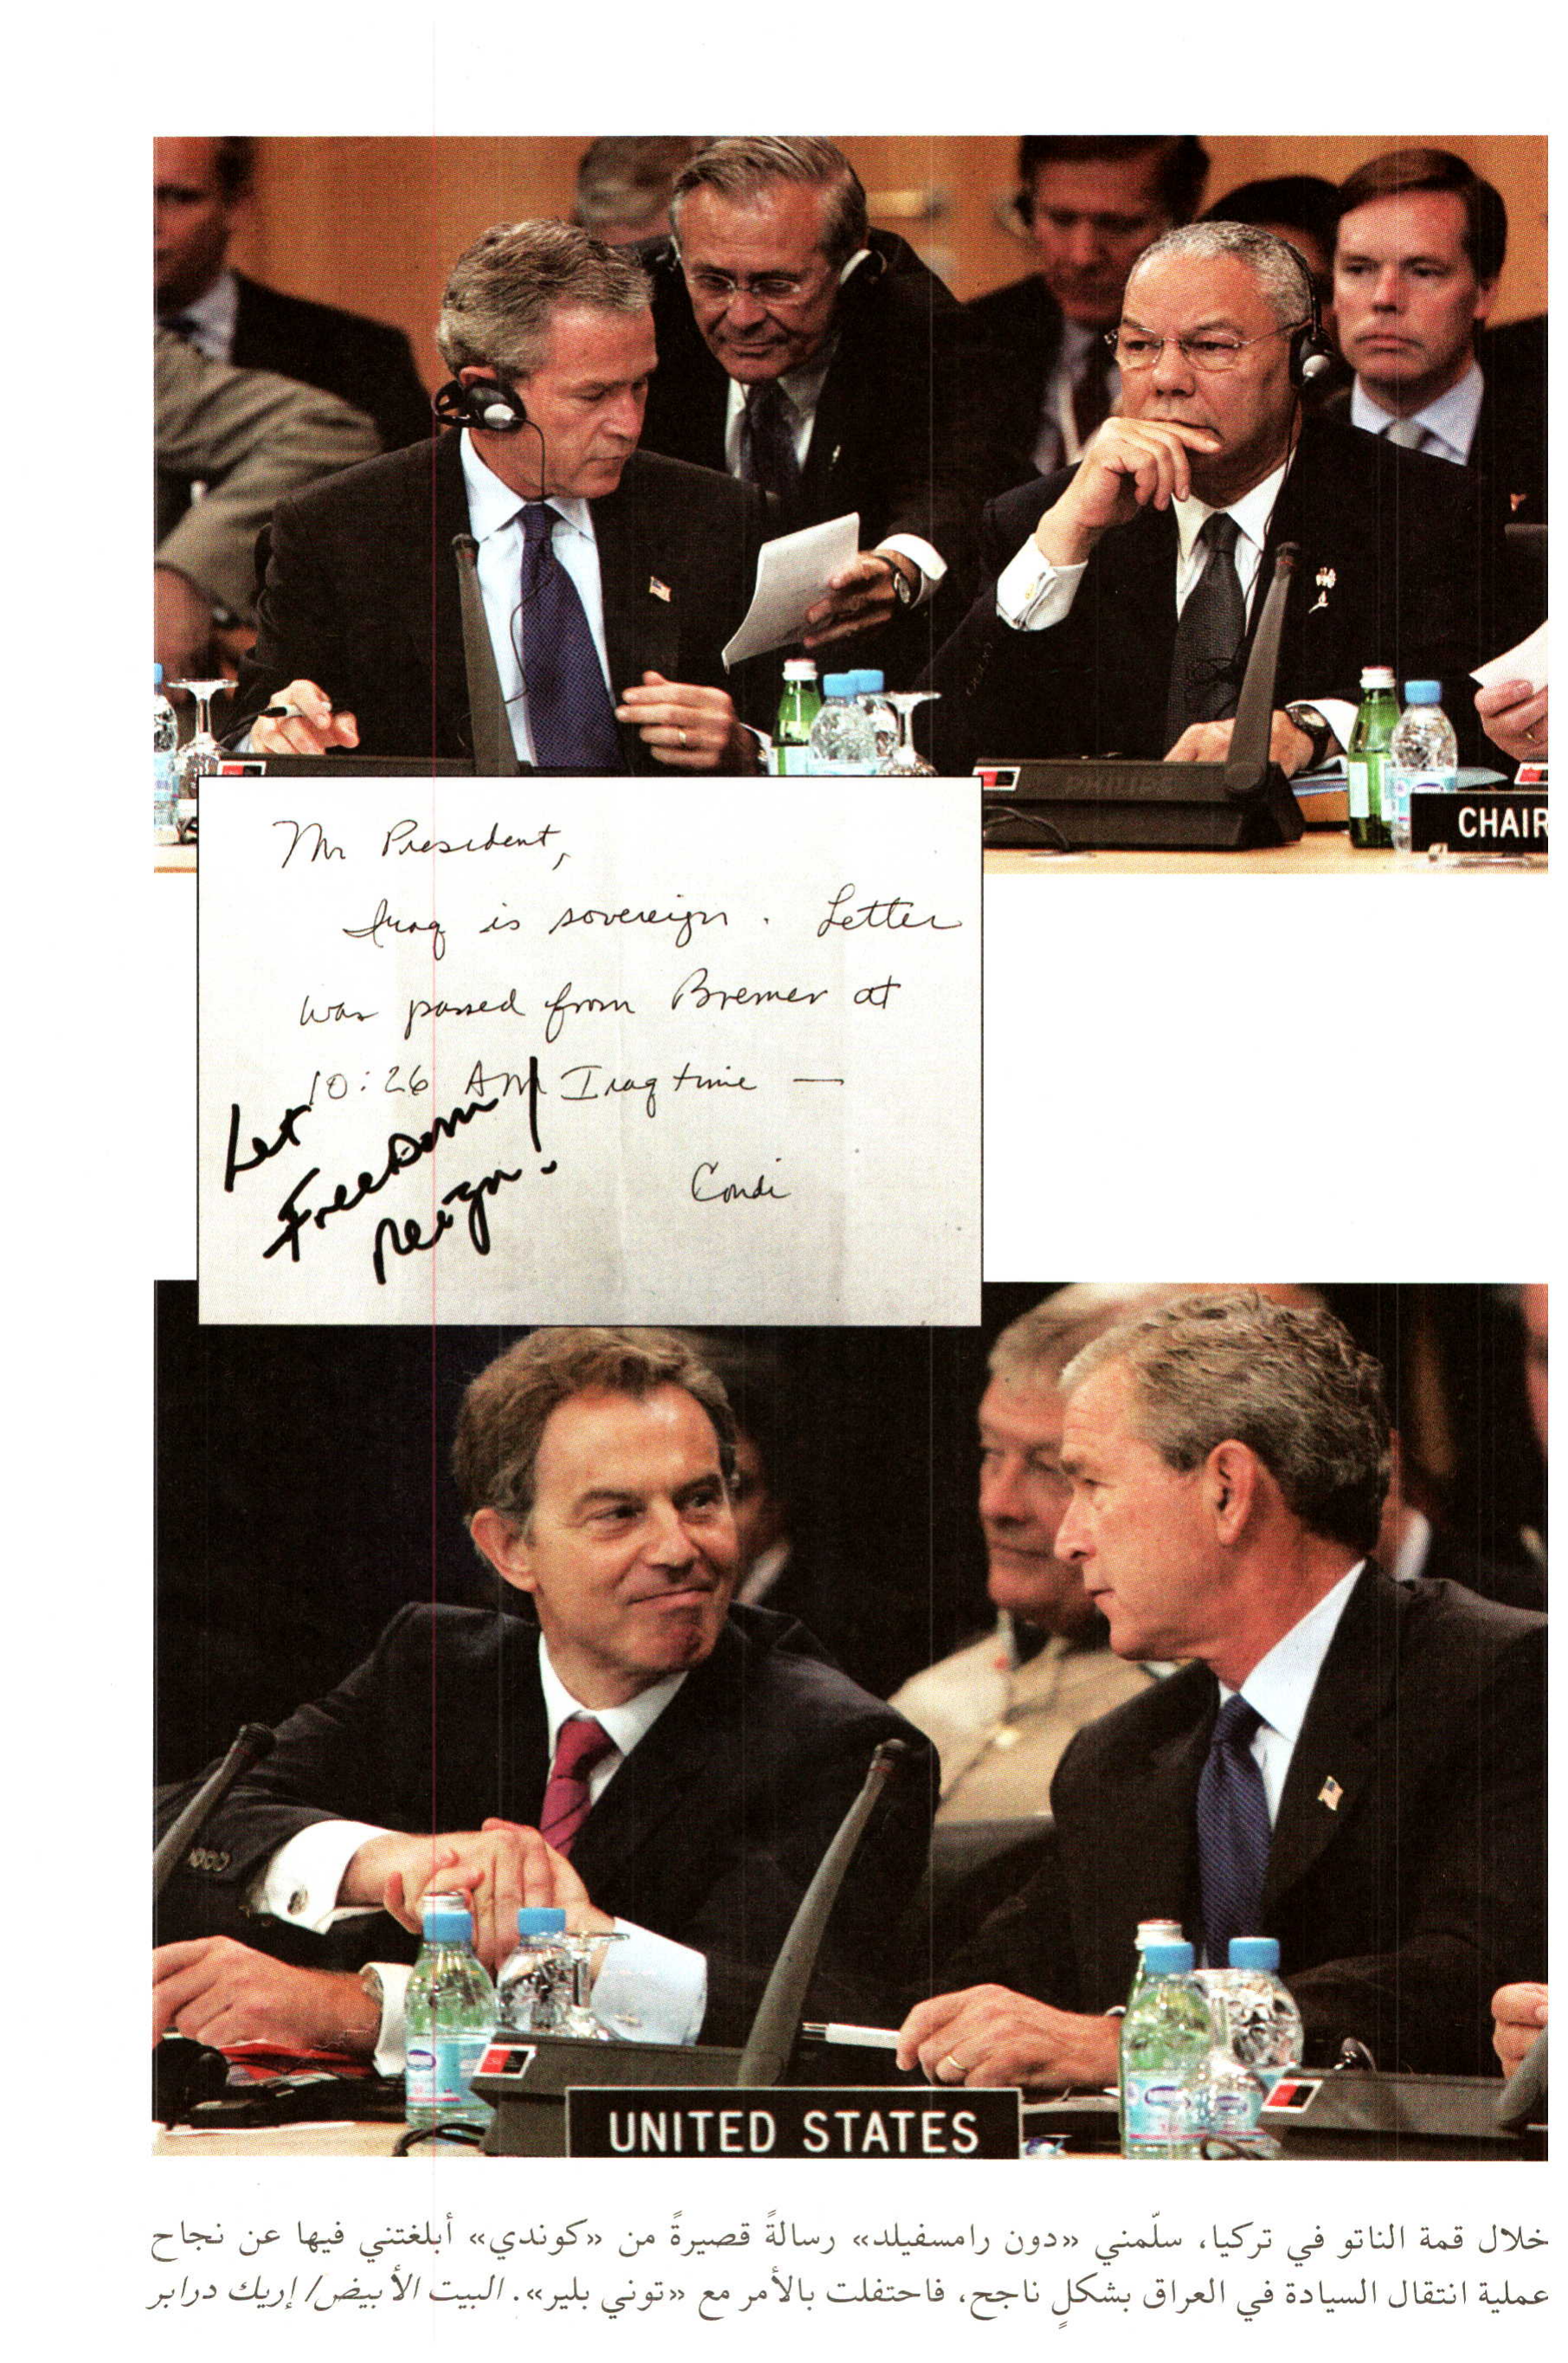 PHILIPS
CHAIR
Mr President,
Iraq is sovereign. Letter
was passed from Bremer at
10:26 AM Iraq time —
Condi
Let
Freedom
Reign!
UNITED STATES
خلال قمة الناتو في تركيا، سلّمني «دون رامسفيلد» رسالةً قصيرةً من «كوندي» أبلغتني فيها عن نجاح
عملية انتقال السيادة في العراق بشكلٍ ناجح، فاحتفلت بالأمر مع «توني بلير». البيت الأبيض/ إريك درابر